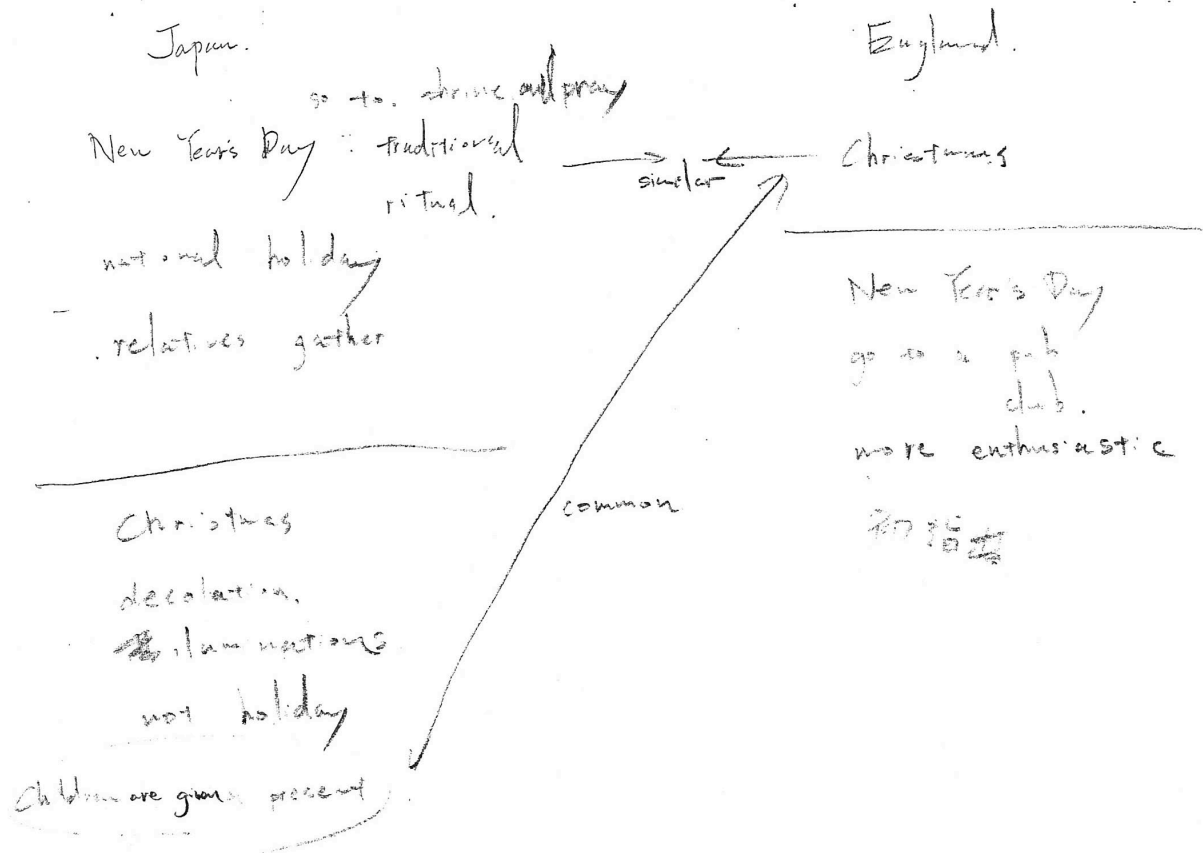 Japan.
go to. shrine and pray
New Year's Day : traditional
ritual.
national holiday
relatives gather
Christmas
decolation.
illuminations
not holiday
Children are given present
similar
common
England.
Christmas
New Year's Day
go to a pub
club.
more enthusiastic
初詣